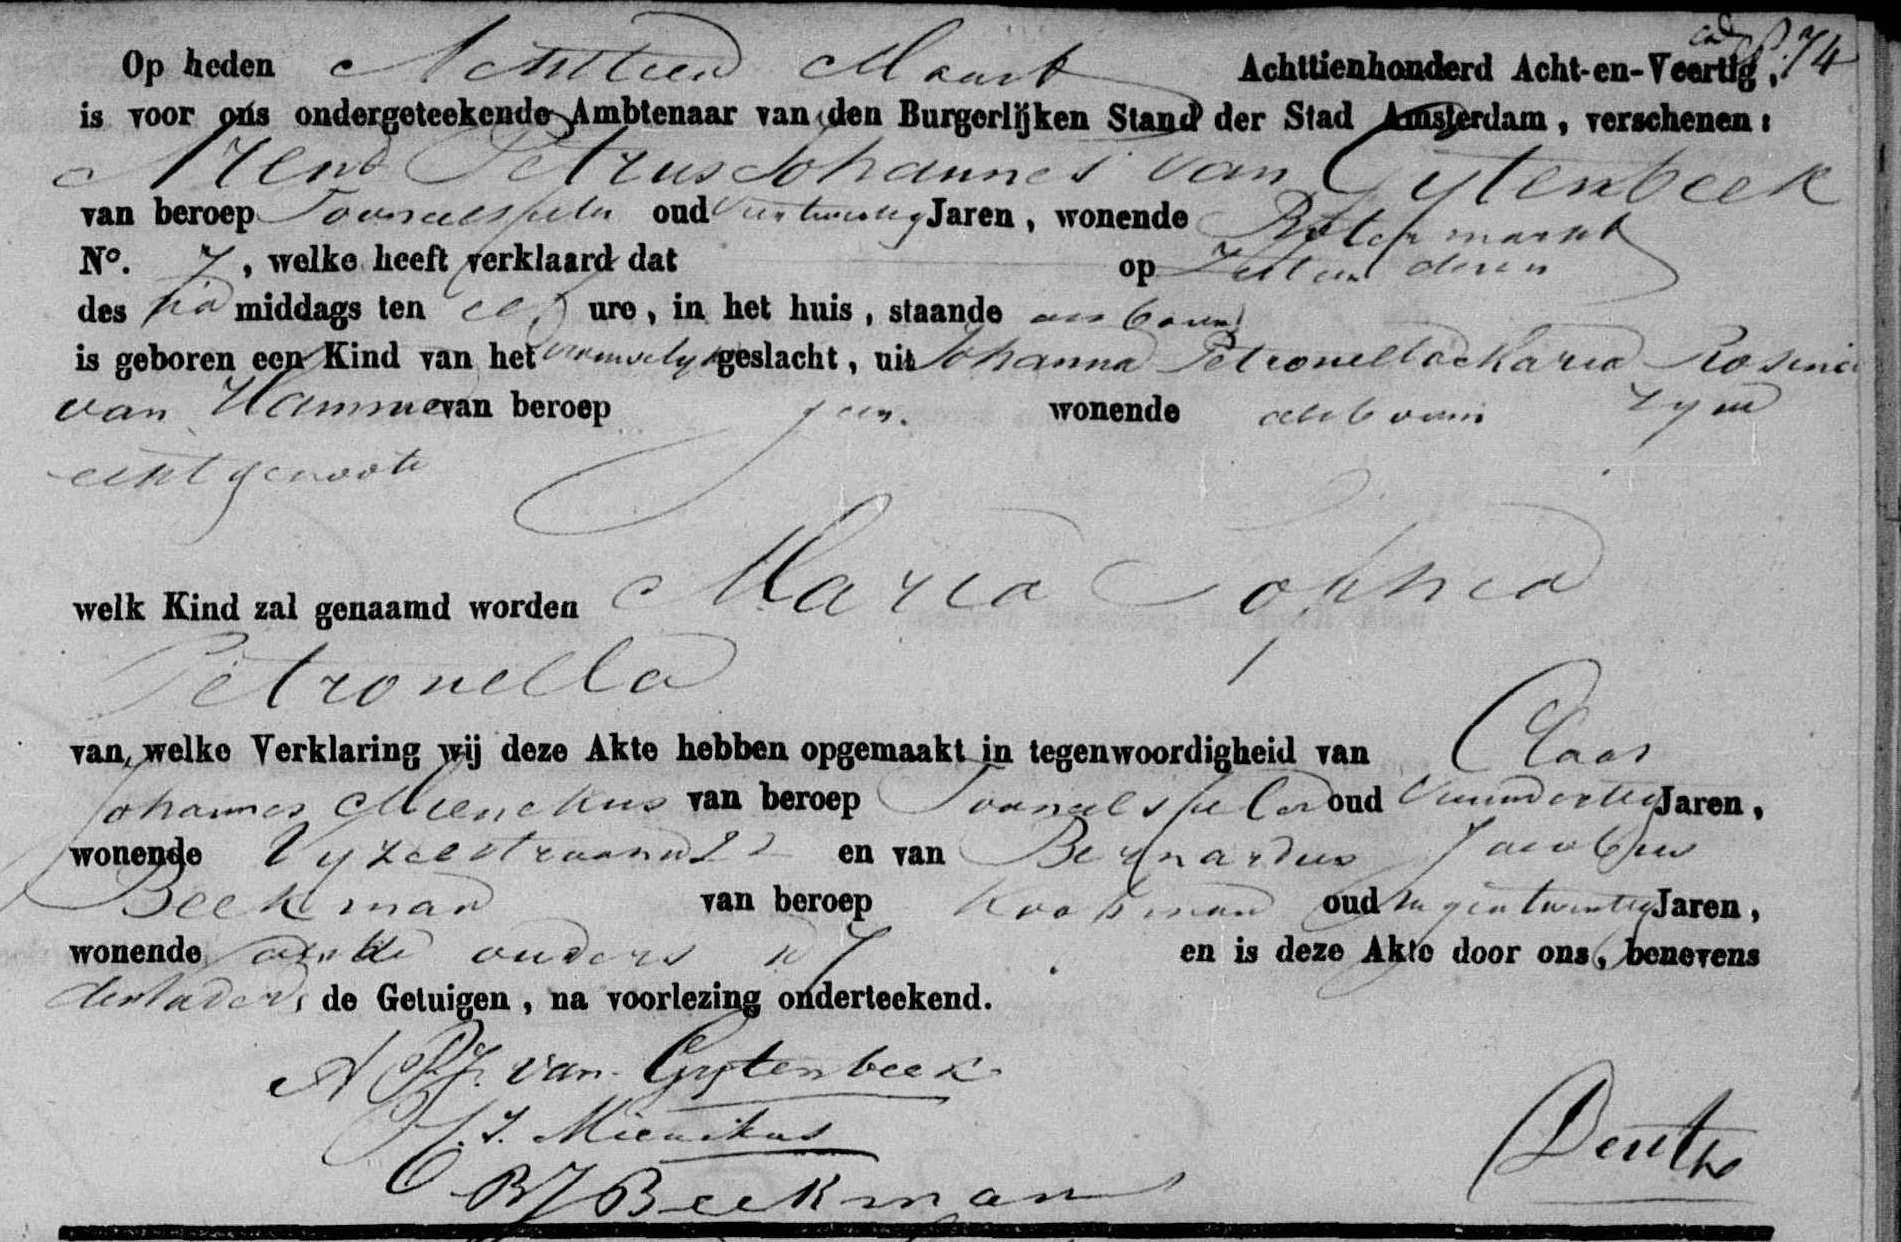 74
Op heden Achttien Maart Achttienhonderd Acht-en-Veertig,
is voor ons ondergeteekende Ambtenaar van den Burgerlijken Stand der Stad Amsterdam, verschenen:
Arend Petrus Johannes van Gytenbeek
van beroep Tooneelspeler oud Jaren, wonende Botermarkt
No. 7, welke heeft verklaard dat op Zestien dezer
des na middags ten elf ure, in het huis, staande als boven
is geboren een Kind van het vrouwelyk geslacht, uit Johanna Petronella Maria Rosina
van Hamme van beroep geen. wonende als boven zyne
echtgenoote
welk Kind zal genaamd worden Maria Sophia
Petronella
van welke Verklaring wij deze Akte hebben opgemaakt in tegenwoordigheid van Claas
Johannes Mienekus van beroep Tooneelspeler oud Jaren,
wonende Vyzelstraat no 22 en van Bernardus Jacobus
Beekman van beroep Koopman oud Jaren,
wonende ouders no 7 en is deze Akte door ons, benevens
den Vader, de Getuigen, na voorlezing onderteekend.
A P.J. van Gytenbeek
C.J. Mienikus
BJ Beekman